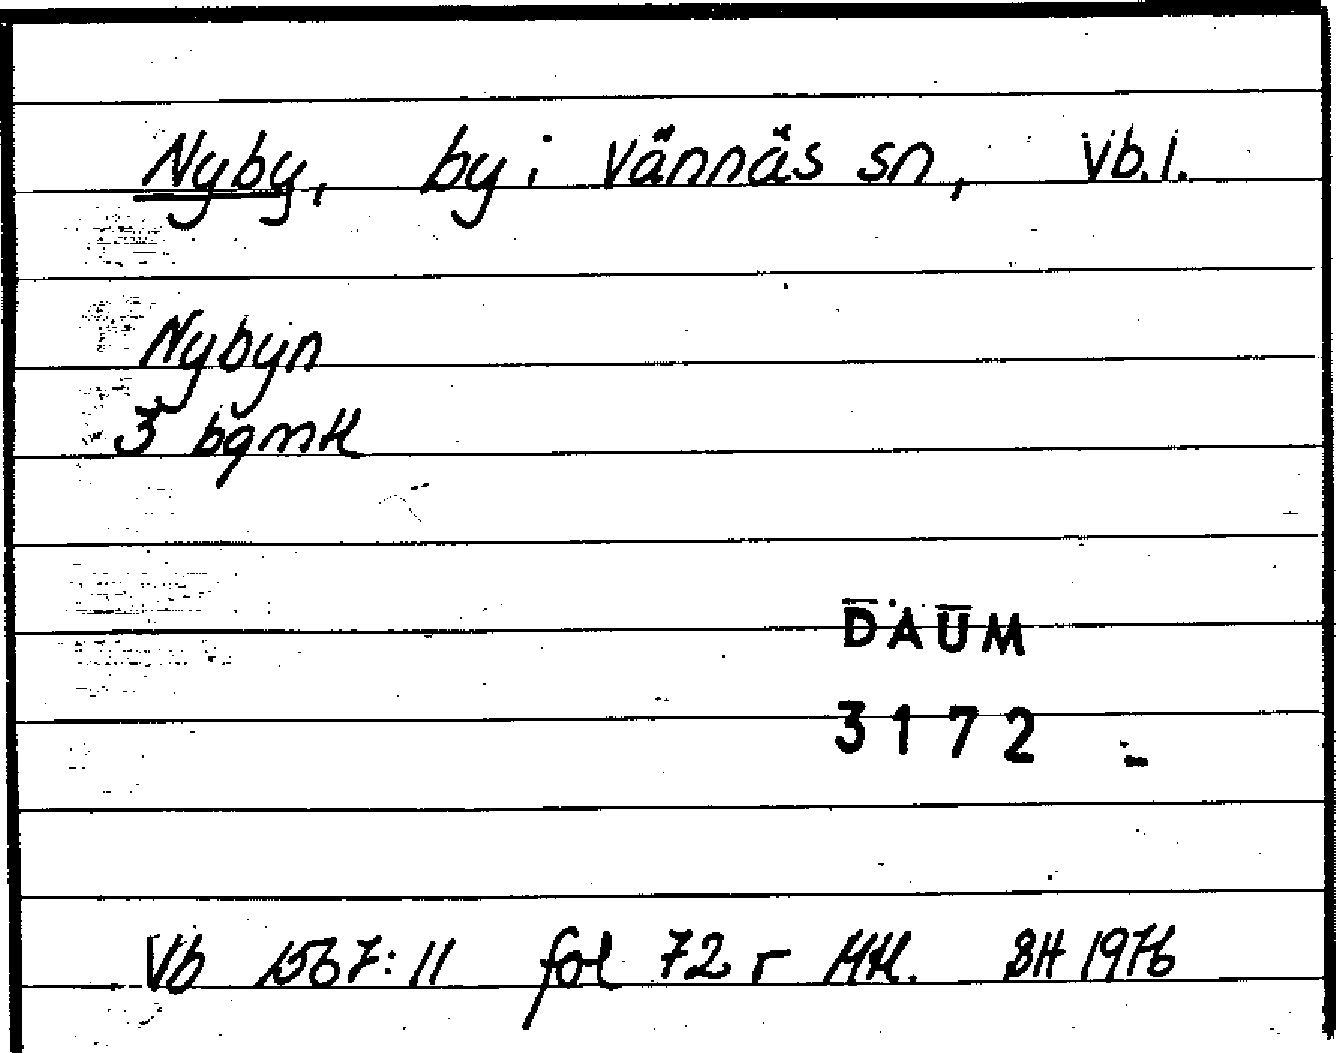 Nyby, by i Vännäs sn, Vb.l.
Nybyn
3 bgmtl
DAUM
3172
Vb 1567:11 fol 72 r HH. BH 1976